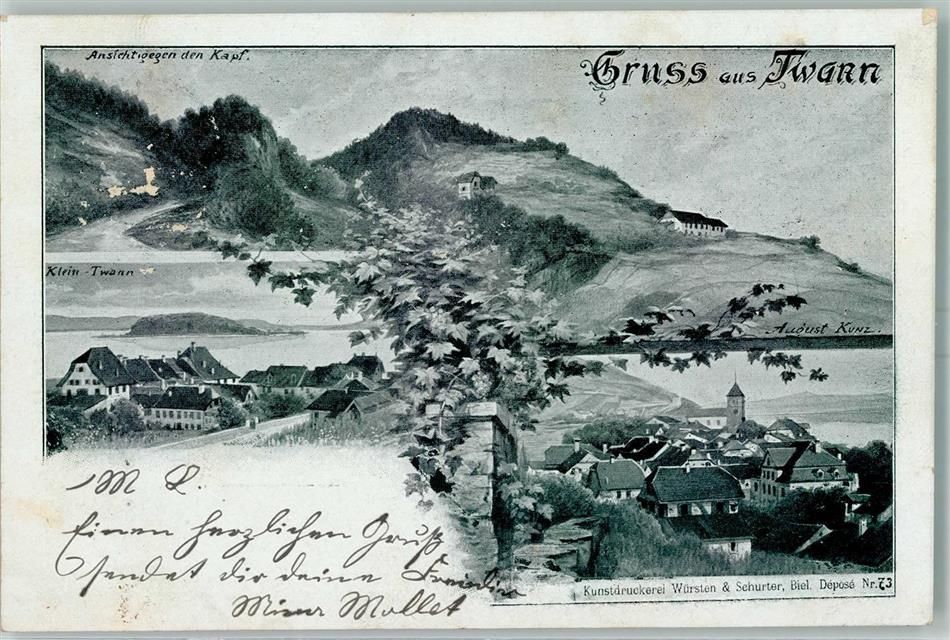 Ansicht gegen den Kapf.
Gruss aus Twann
Klein-Twann
August Kunz.
M L.
Einen herzlichen Gruß
sendet dir deine Freundin
Minna Mollet
Kunstdruckerei Würsten & Schurter, Biel. Déposé Nr. 73